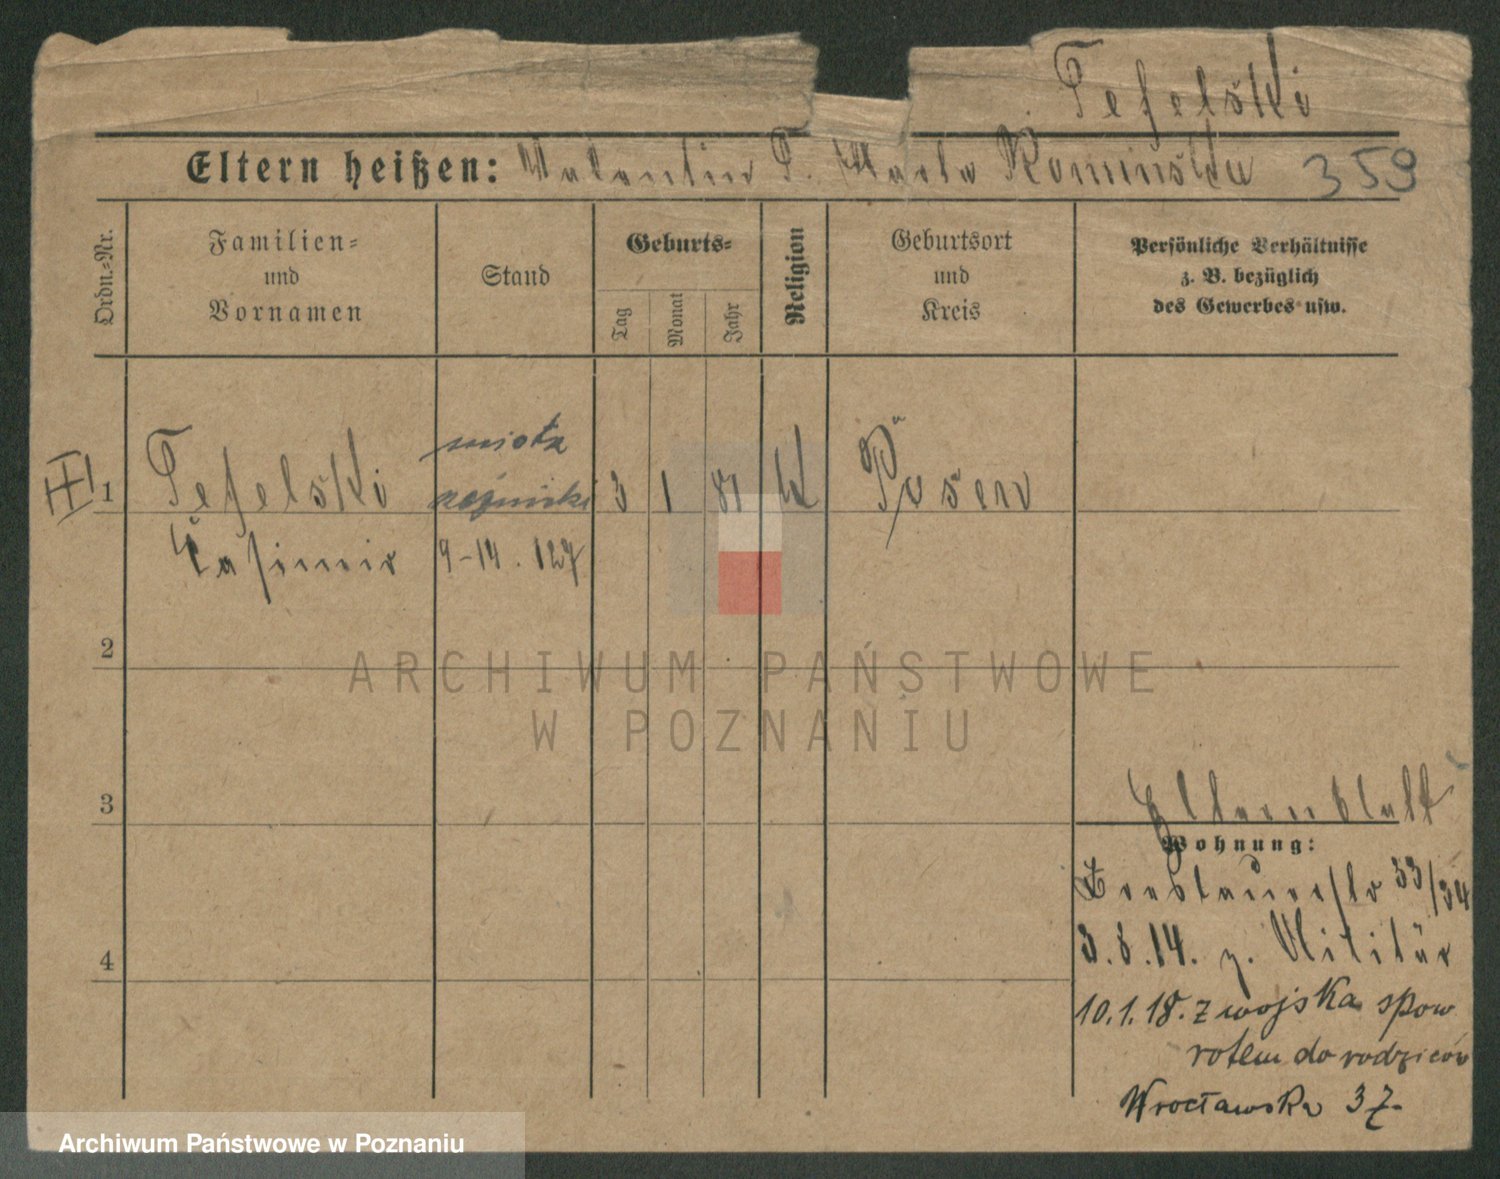 Tefelski
Eltern heißen: Valentin T. Maria Kominska 359
Ordn.=Nr.
Familien=
und
Vornamen
Stand
Geburts=
Tag
Monat
Jahr
Religion
Geburtsort
und
Kreis
Persönliche Verhältnisse
z. B. bezüglich
des Gewerbes usw.
III
1 Tefelski 3 1 81 k Posen
Casimir 9-14. 127
2
ARCHIWUM PAŃSTWOWE
W POZNANIU
3
Elternblatt
Wohnung:
Breslauerstr 33/34
3.8.14. z. Militär
4
10.1.18. z wojska spow
rotem do rodziców
Wrocławska 37.
Archiwum Państwowe w Poznaniu